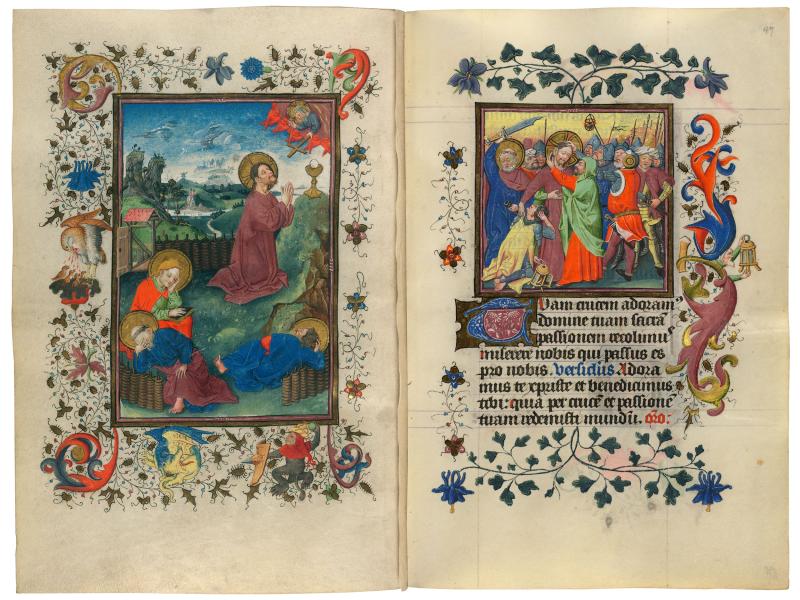 97
Tuam crucem adoram⁹
domine tuam sacrā
passionem recolimu
miserere nobis qui passus es
pro nobis. Versiclus Adora
mus te xpriste et benedicimus
tibi: quia per crucē et passionē
tuam redemisti mundū. oro: